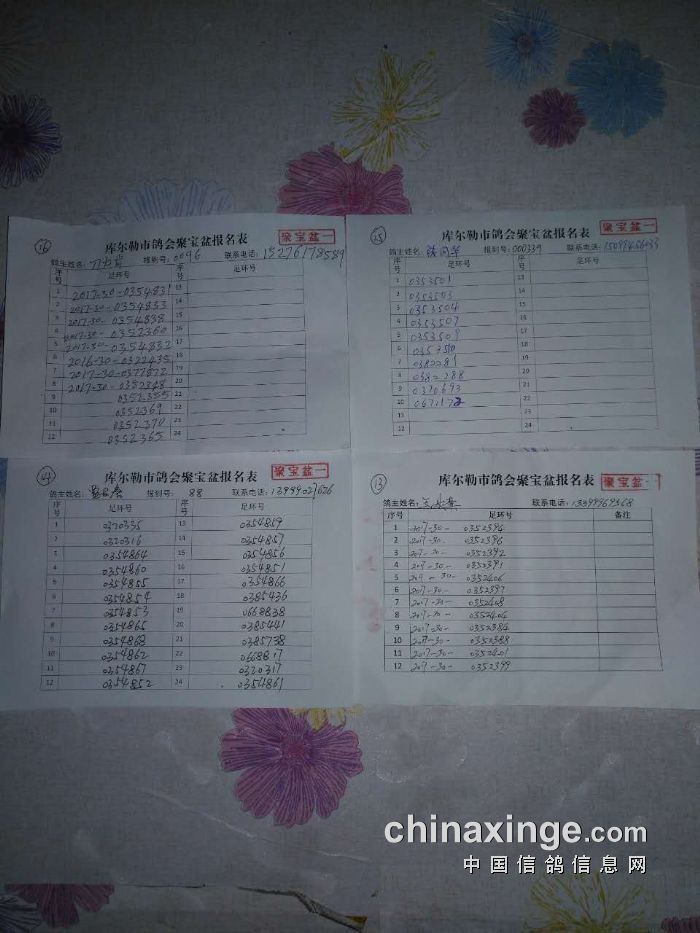 16
库尔勒市鸽会聚宝盆报名表
聚宝盆一
鸽主姓名: 报到号: 0096 联系电话: 15276178589
序号 足环号 序号 足环号
1 2017-30-0354831 13
2 2017-30-0354833 14
3 2017-30-0354838 15
4 2017-30-0352360 16
5 2017-30-0354832 17
6 2016-30-0322435 18
7 2017-30-0377872 19
8 2017-30-0352348 20
9 0352355 21
10 0352369 22
11 0352370 23
12 0352365 24
25
库尔勒市鸽会聚宝盆报名表
聚宝盆一
鸽主姓名: 报到号: 000339 联系电话:
序号 足环号 序号 足环号
1 0353501 13
2 0353503 14
3 0353504 15
4 0353507 16
5 0353509 17
6 18
7 0382281 19
8 0382288 20
9 0370693 21
10 22
11 23
12 24
库尔勒市鸽会聚宝盆报名表
聚宝盆一
鸽主姓名: 报到号: 88 联系电话: 13999027626
序号 足环号 序号 足环号
1 0320335 13 0354859
2 0320316 14 0354857
3 0354864 15 0354856
4 0354860 16 0354851
5 0354855 17 0354866
6 0354854 18 0385436
7 0354853 19 0668838
8 0354865 20 0385441
9 0354868 21 0385738
10 0354862 22 0668817
11 0354867 23 0320317
12 0354852 24 0354861
13
库尔勒市鸽会聚宝盆报名表
聚宝盆一
鸽主姓名: 联系电话: 13399969568
序号 足环号 备注
1 2017-30- 0352394
2 2017-30- 0352396
3 2017-30- 0352392
4 2017-30- 0352391
5 2017-30- 0352406
6 2017-30- 0352397
7 2017-30- 0352408
8 2017-30- 0352406
9 2017-30- 0352384
10 2017-30- 0352388
11 2017-30- 0352401
12 2017-30- 0352399
chinaxinge.com
中国信鸽信息网